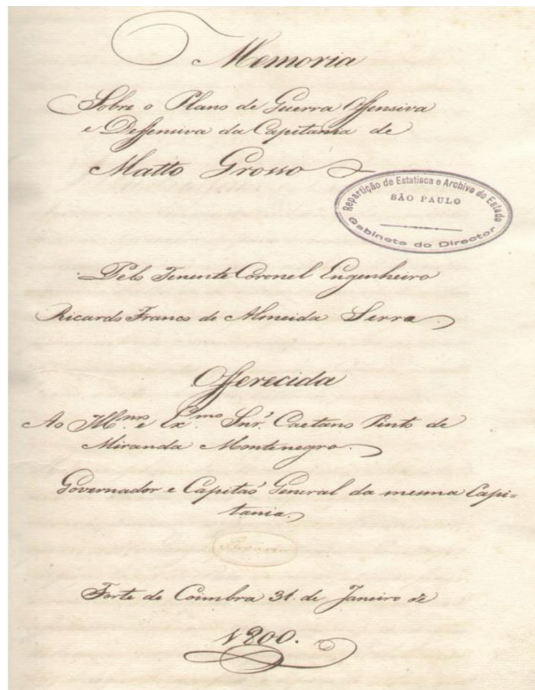 Memoria
Sobre o Plano de Guerra Offensiva
e Deffensiva da Capitania de
Matto Grosso
Repartição de Estatisca e Archivo do Estado
SÃO PAULO
Gabinete do Director
Pelo Tenente Coronel Engenheiro
Ricardo Franco de Almeida Serra.
Offerecida
Ao Illmo. e Exmo. Snr. Caetano Pinto de
Miranda Montenegro.
Governador e Capitaõ General da mesma Capi-
tania.
Forte de Coimbra 31. de Janeiro de
1800.